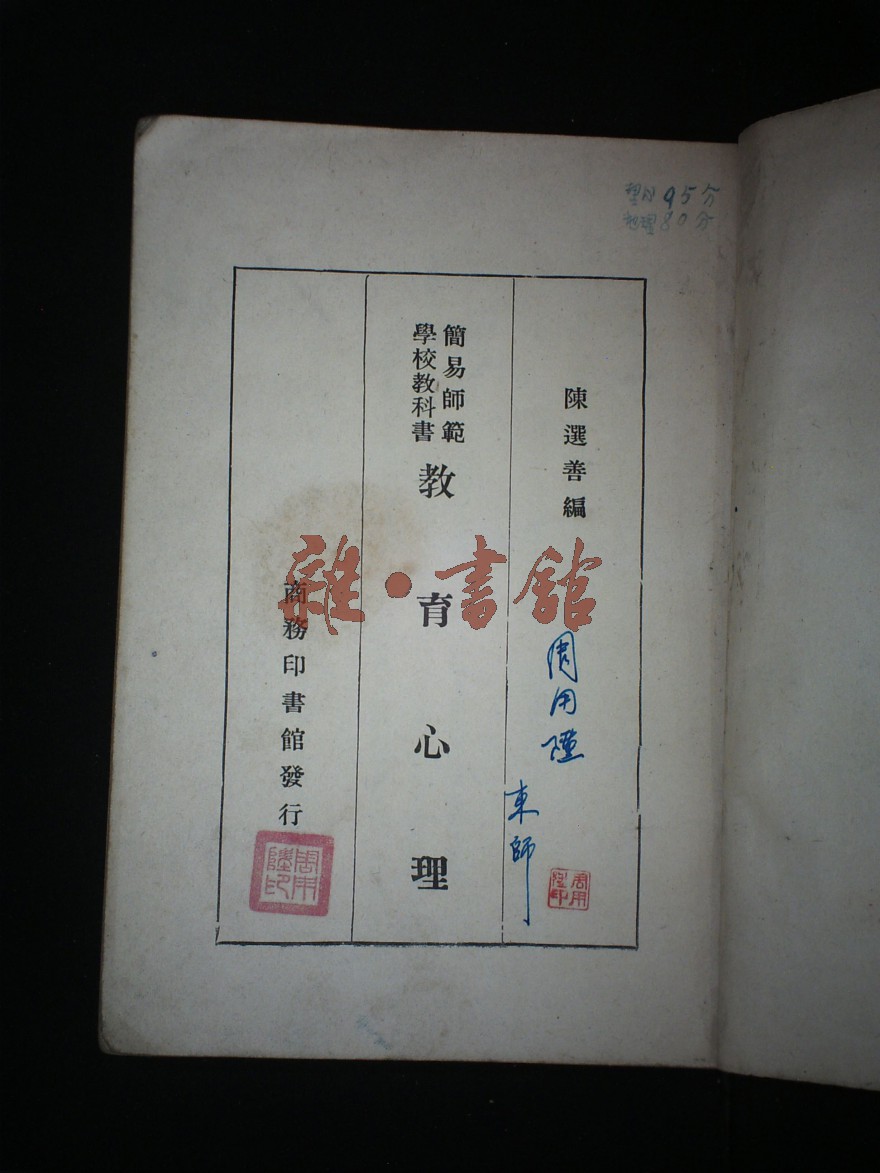 95分
80分
陳選善編
周用
東師
簡易師範
學校教科書
教育心理
商務印書館發行
雜·書館
周用
印